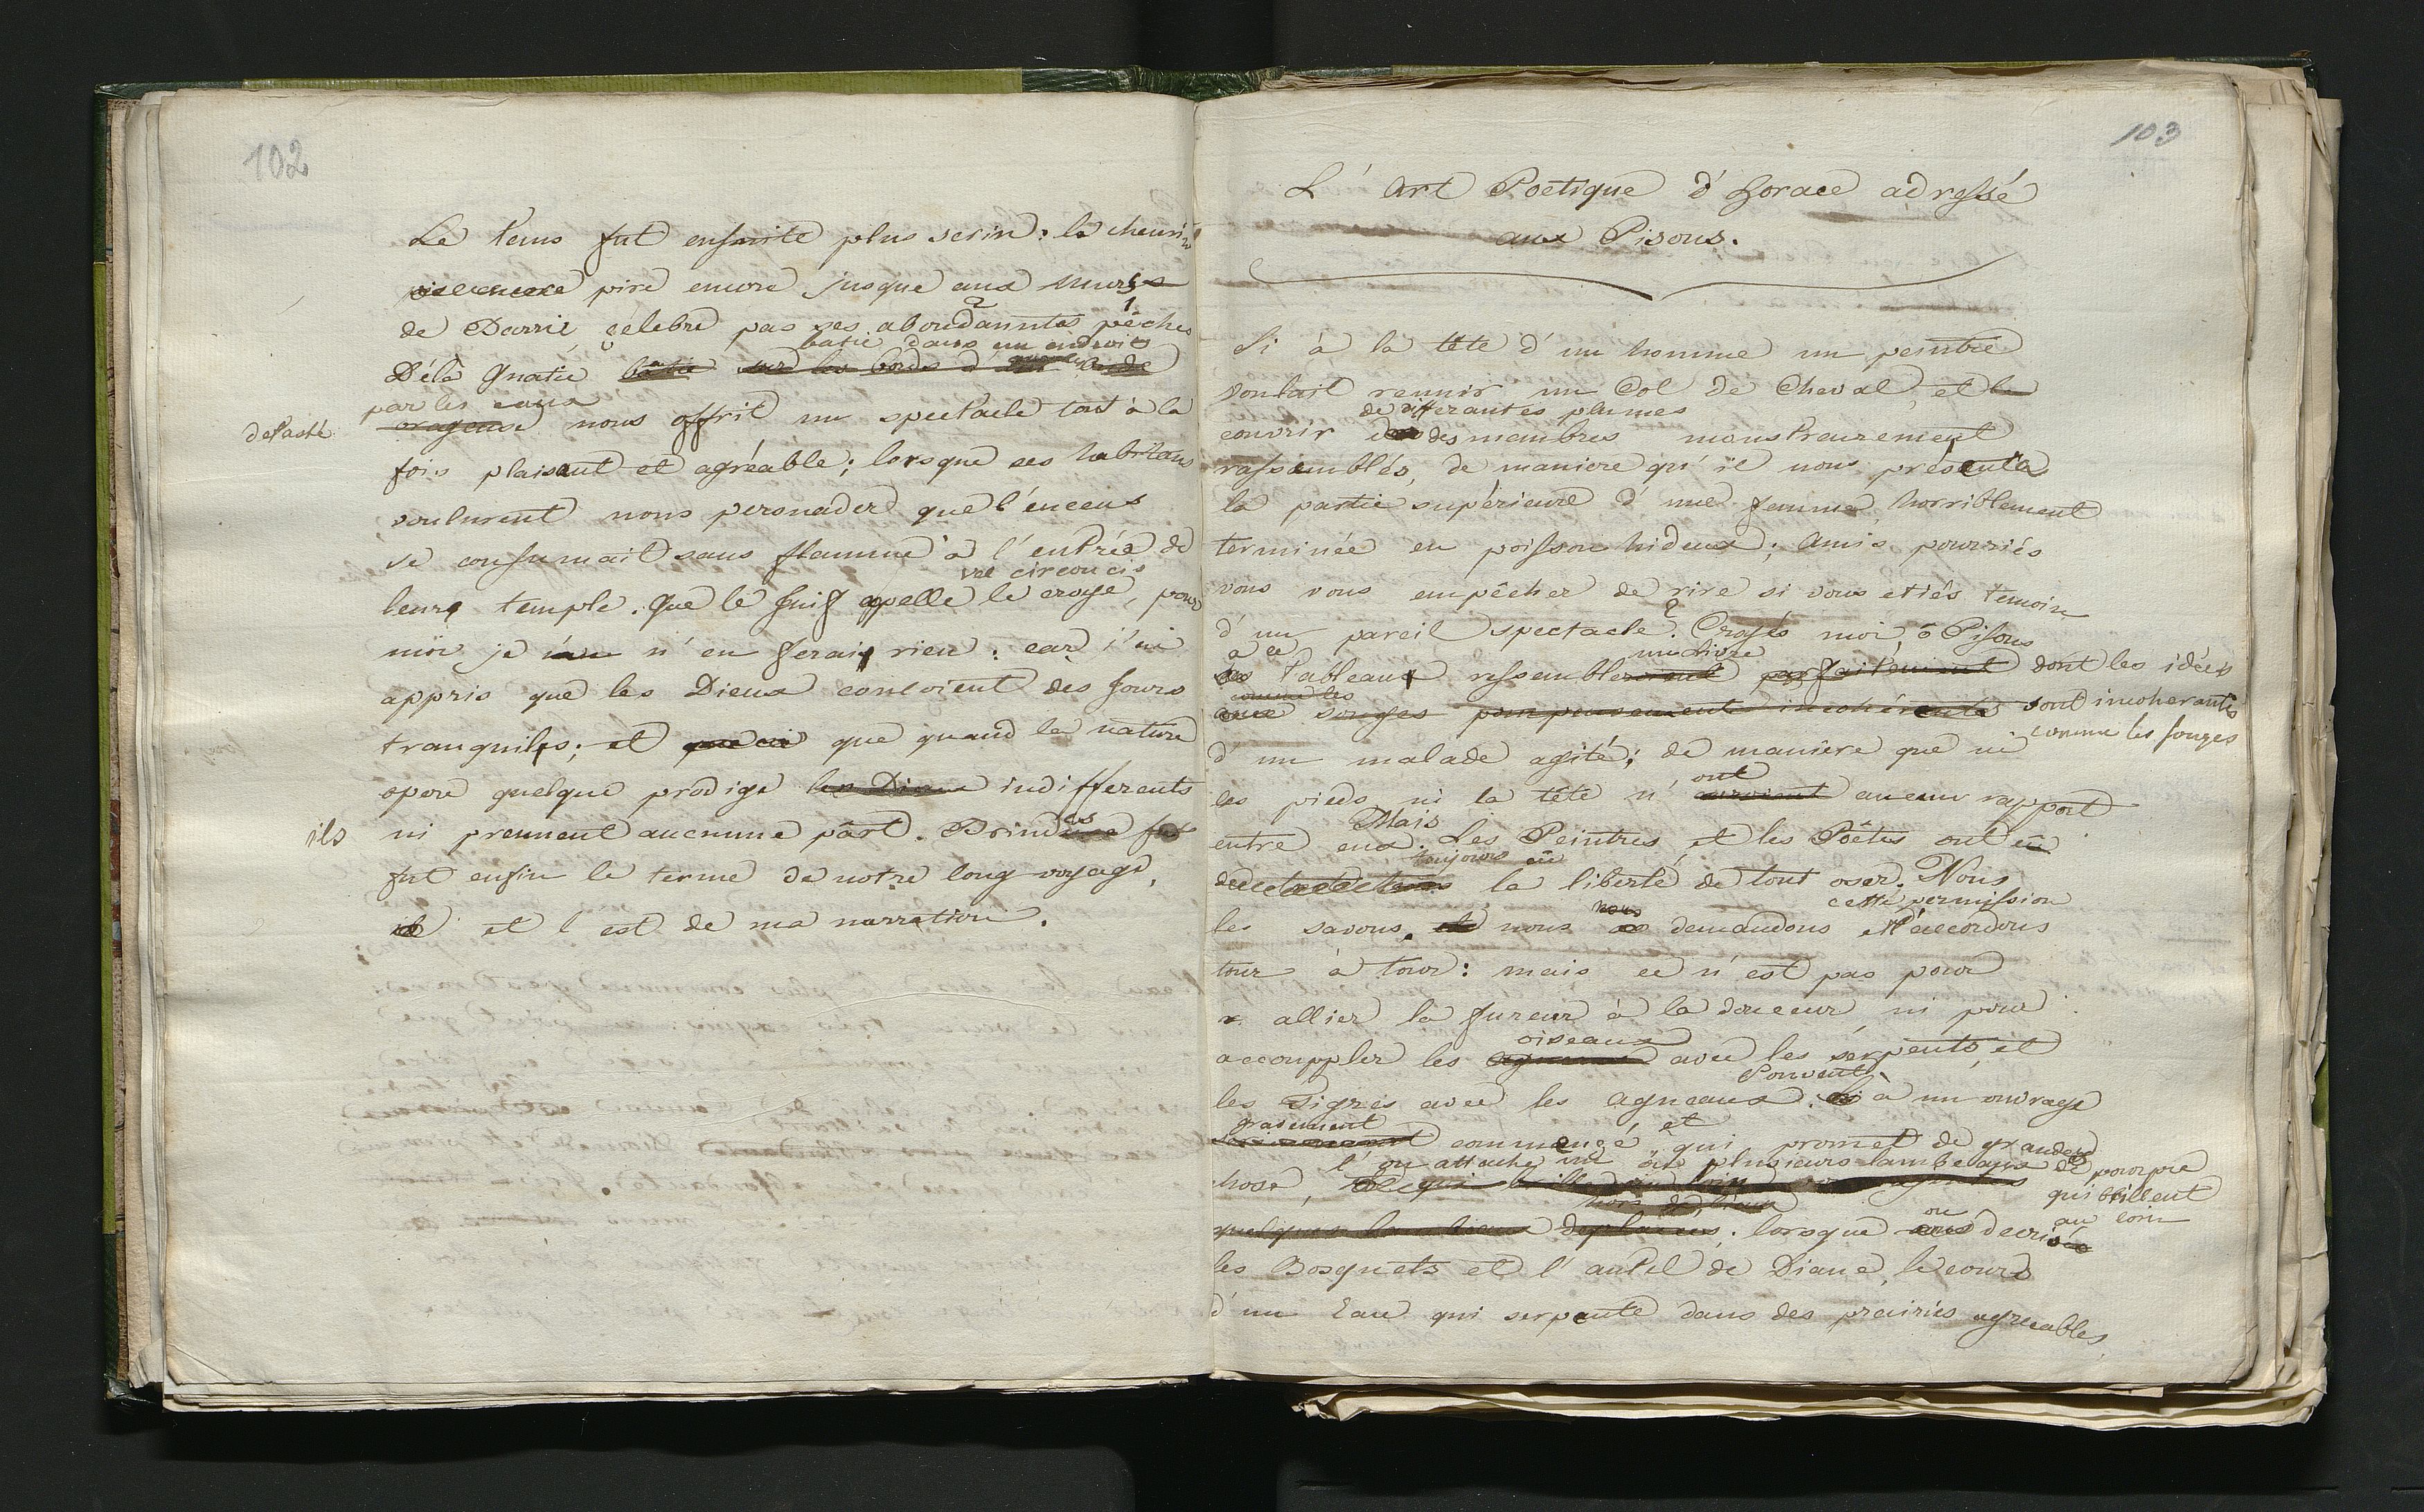 102
Le tems fut ensuite plus serin: le chemin
pire encore jusque aux murs
de Barri, célebre pas ses abondanntes pêches
2 1
batie dans un endroit
Délà Gnatie bâtie sur les bords d' onde
par les eaux
devasté orageuse nous offrit un spectacle tout à la
fois plaisant et agréable; lorsque ses habitans
voulurent nous persuader que l'encens
se consumait sans flamme à l'entrée de
vel circoncis
leurs temple. Que le Juif appelle le croye, pour
moi je n'en ferais rien: car j'ai
appris que les Dieux couloient des jours
tranquils; et que quand la nature
opere quelque prodige les Dieux indifferents
ils ni prennent aucunne part. Brindes fut
fut enfin le terme de notre long voyage,
et l'est de ma narration.
103
L'Art Poetique d'Horace adressé
aux Pisons.
Si à la tête d'un homme un peintre
voulait reunnir un Col de Cheval, et le
de differantes plumes
couvrir des membres monstreuzement
rassemblés, de maniere qu'il nous présenta
la partie supérieure d'une femme, horriblement
terminée en poisson hideux; Amis pourriés
vous vous empêcher de rire si vous etiés temoin
d'un pareil spectacle? Croyés moi, ô Pisons
à ce un livre
tableaux ressembleroient parfaitement dont les idées
comme les
aux songes pompeusement incohérents sont incoherantes
comme les songes
d'un malade agité; de manière que ni
ont
les pieds, ni la tête n' auroient aucun rapport
Mais
entre eux. Les Peintres, et les Poêtes ont eu
toujours eu
la liberté de tout oser. Nous
cette permission
nous
les savons, et nous demandons et l'accordons
tour à tour: mais ce n'est pas pour
allier la fureur à la douceur, ni pour
oiseaux
accouppler les agneaux avec les serpents, et
Souvent
les Tigres avec les agneaux. Si à un ouvrage
gravement et
commencé qui promet de grandes
l'on attache un ou plusieurs lambeaux de pourpre
chose, qui brillent
hors de lieux au loin
quelques lambeaux deplacées; lorsque ou decris
les Bosquets et l'autel de Diane, le cours
d'un Eau qui serpente dans des prairies agreables,